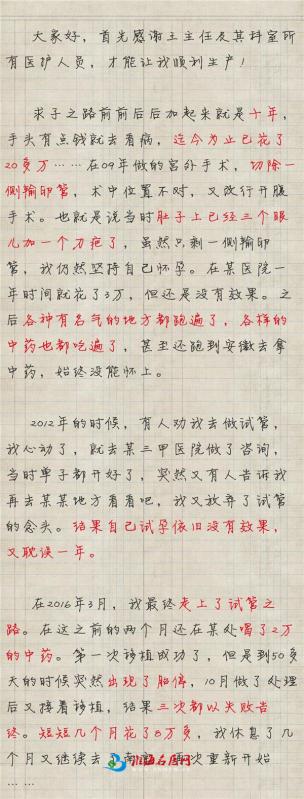 大家好，首先感谢王主任及其科室所
有医护人员，才能让我顺利生产！
求子之路前前后后加起来就是十年，
手头有点钱就去看病，迄今为止已花了
20多万……在09年做的宫外手术，切除一
侧输卵管，术中位置不对，又改行开腹
手术。也就是说当时肚子上已经三个眼
儿加一个刀疤了，虽然只剩一侧输卵
管，我仍然坚持自己怀孕。在某医院一
年时间就花了3万，但还是没有效果。之
后各种有名气的地方都跑遍了，各样的
中药也都吃遍了，甚至还跑到安徽去拿
中药，始终没能怀上。
2012年的时候，有人劝我去做试管，
我心动了，就去某三甲医院做了咨询，
当时单子都开好了，突然又有人告诉我
再去某某地方看看吧，我又放弃了试管
的念头。结果自己试孕依旧没有效果，
又耽误一年。
在2016年3月，我最终走上了试管之
路。在这之前的两个月还在某处喝了2万
的中药。第一次移植成功了，但是到50多
天的时候突然出现了胎停，10月做了处理
后又接着移植，结果三次都以失败告
终。短短几个月花了8万多，我休息了几
个月又继续去 南 再次重新开始
……